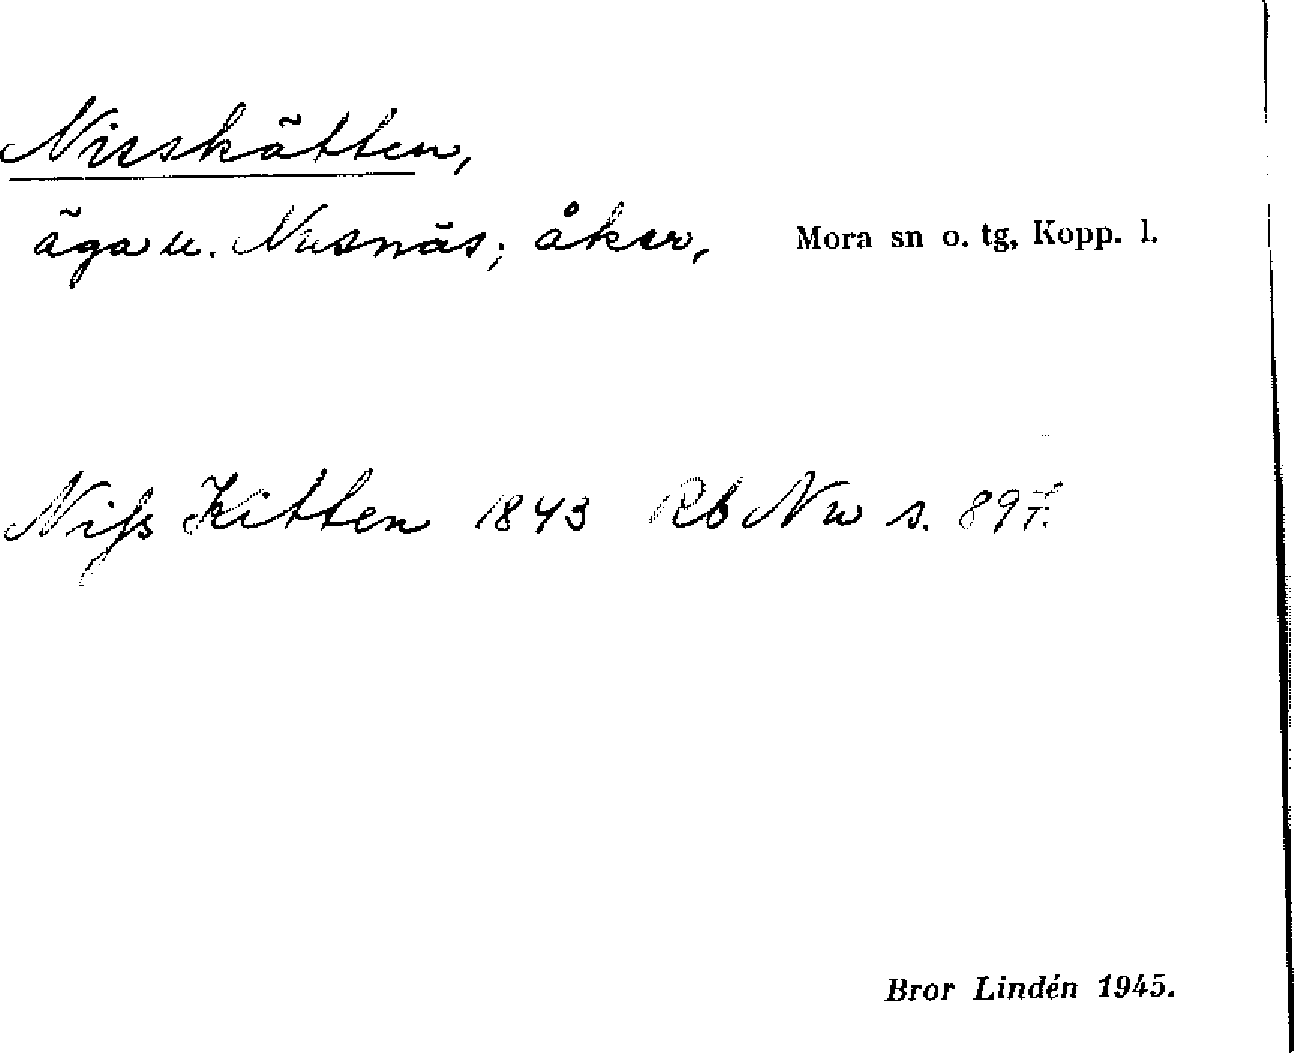 Nisskätten,
äga u. Nusnäs; åker, Mora sn o. tg, Kopp. l.
Nifs Kitten 1843 Rb Nu s. 89
Bror Lindén 1945.